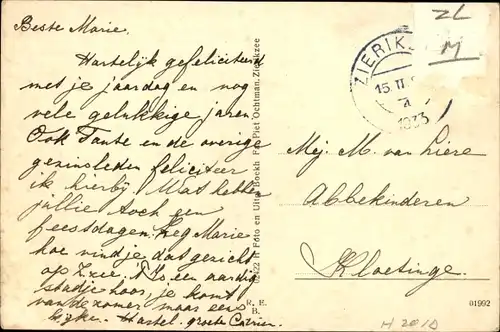 Beste Marie.
Hartelijk gefeliciteerd
met je jaardag en nog
vele gelukkige jaren
Ook Tante en de overige
gezinsleden feliciteer
ik hierbij. Wat hebben
jullie toch een
feestdagen. Zeg Marie
hoe vind je dat gezicht
op Zzee. 't Is een aardig
stadje hoor, je komt
van de zomer maar eens
kijken. Hartel. groete Catrien.
02922 Foto en Uitg. Boekh Fa. Piet Ochtman, Zierikzee
R. E.
B.
ZIERIKZEE
15. II
1933
ZL
M
Mej. M. van Liere
Abbekinderen
Kloetinge.
01992
H 2010